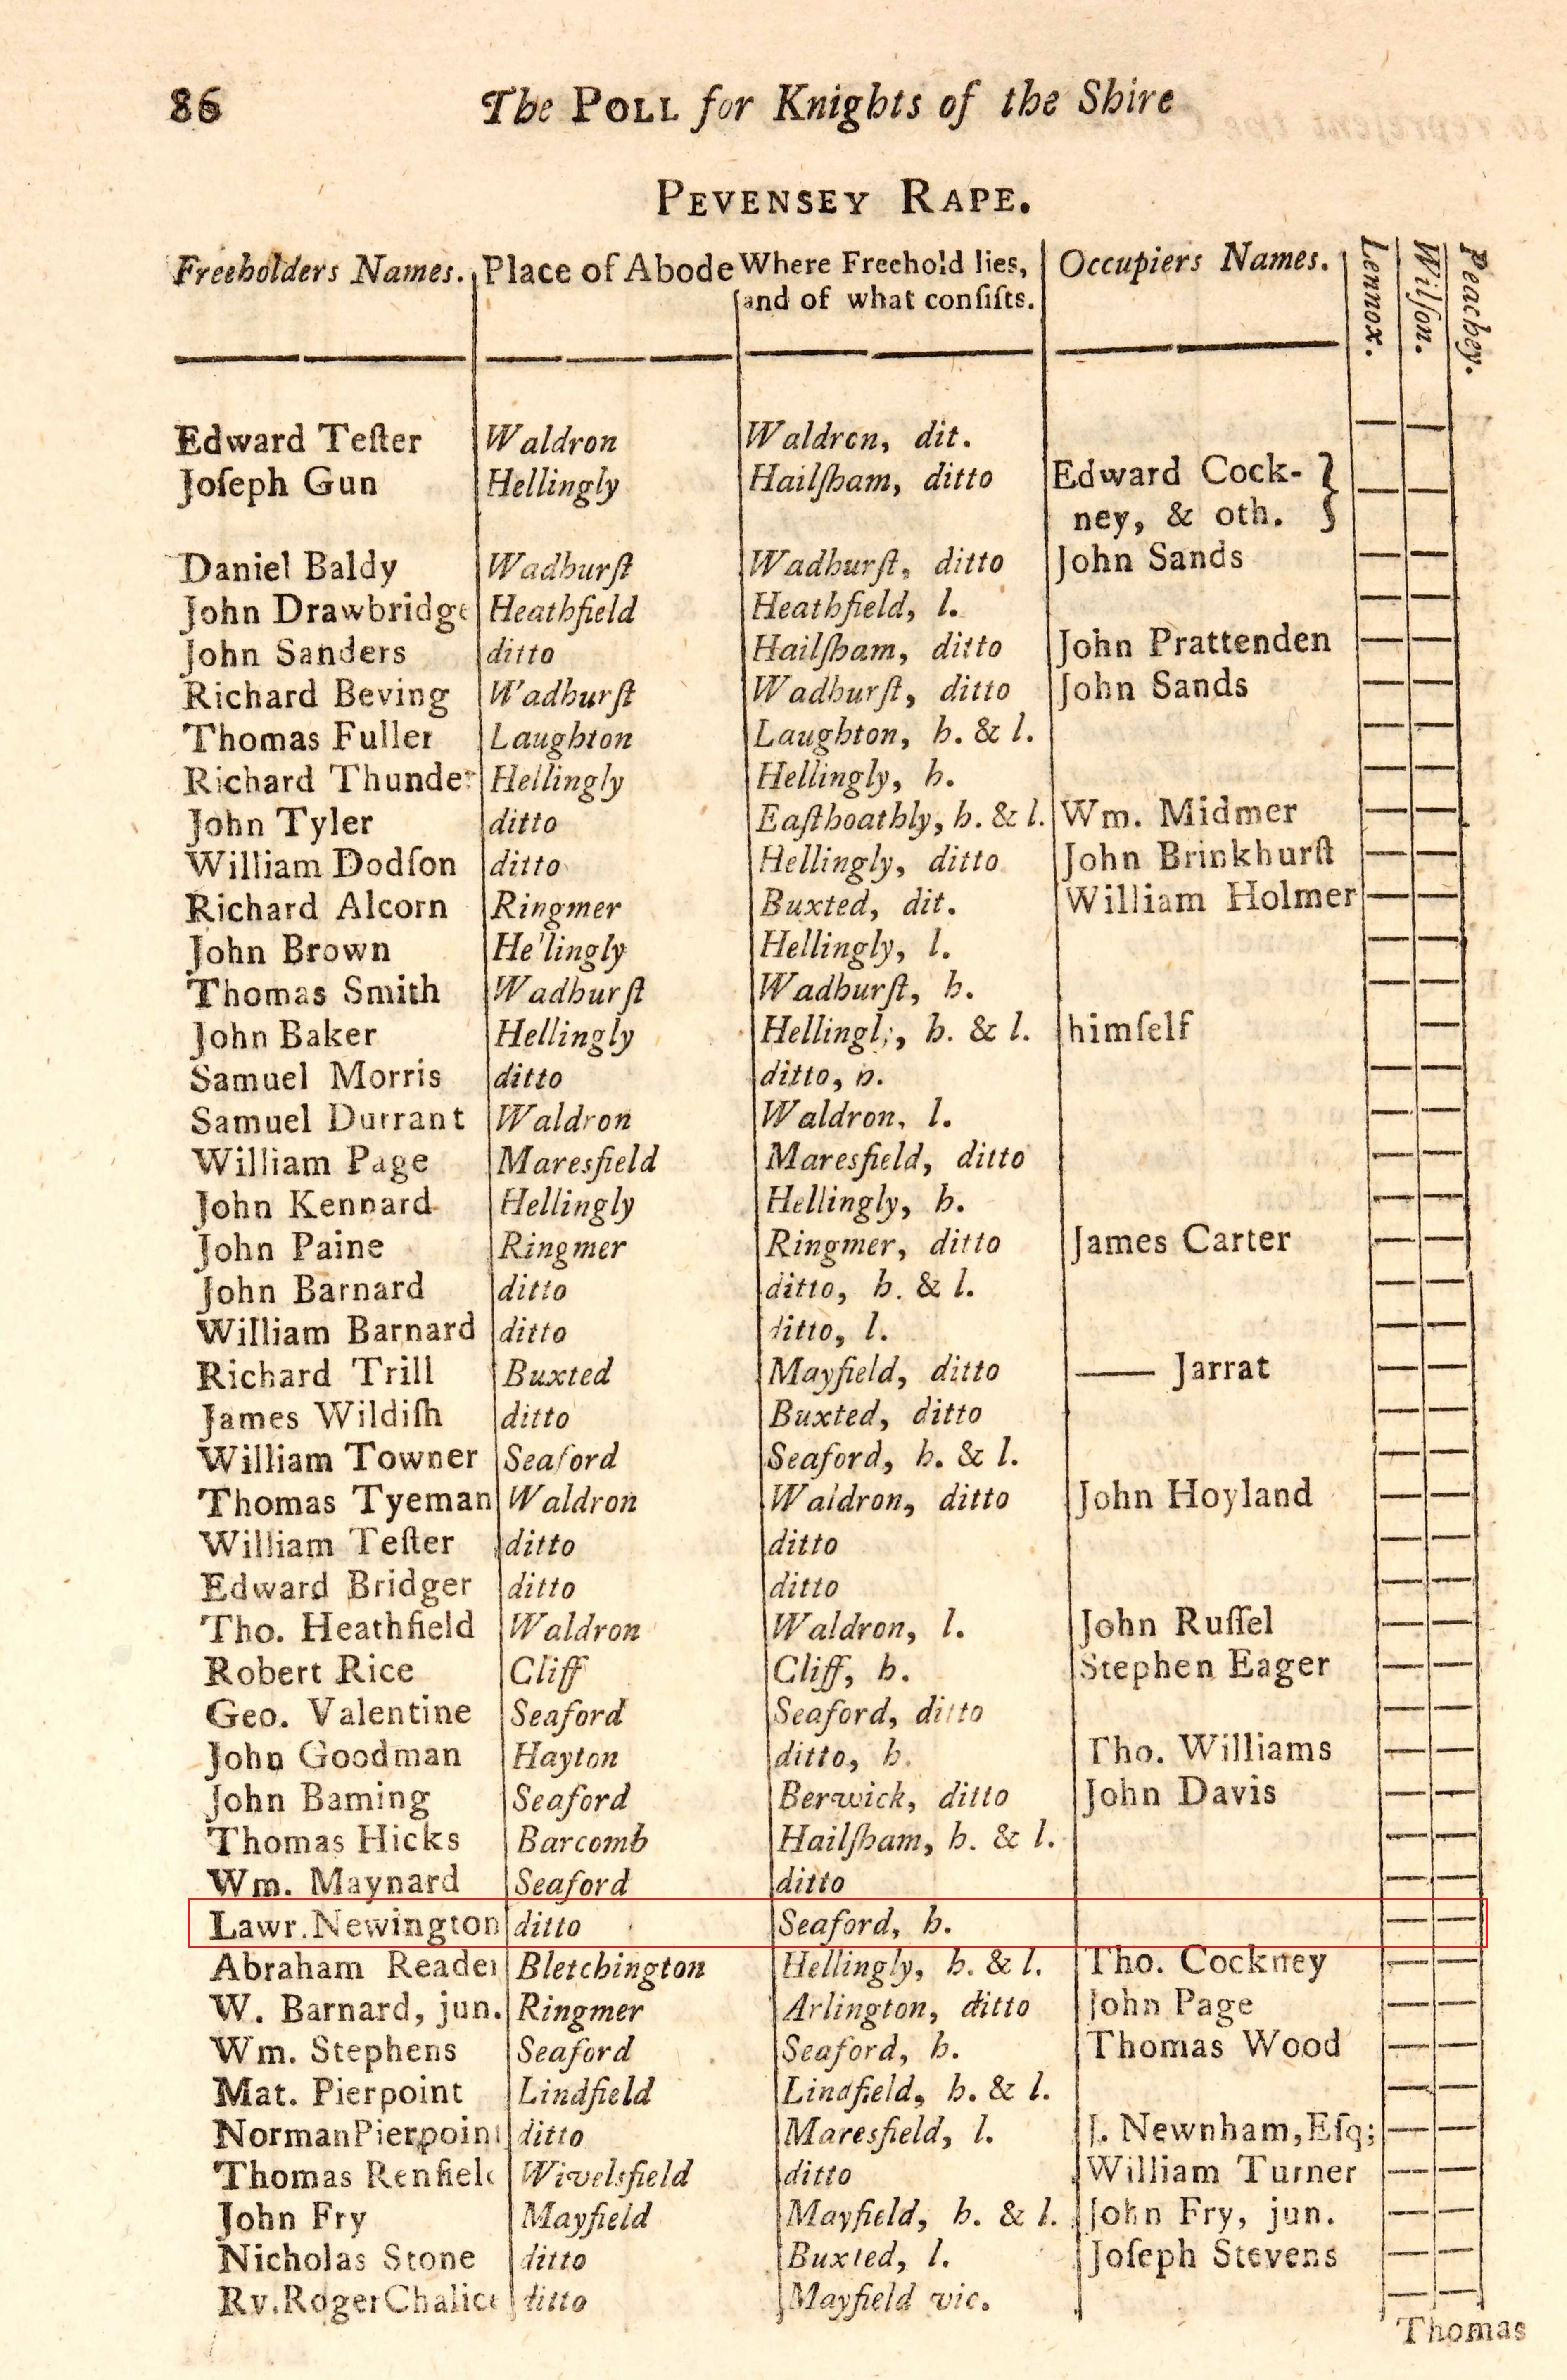 86 The POLL for Knights of the Shire
PEVENSEY RAPE.
Freeholders Names. Place of Abode Where Freehold lies, Occupiers Names. Lennox. Wilſon. Peachey.
and of what conſiſts.
Edward Teſter Waldron Waldron, dit. — —
Joſeph Gun Hellingly Hailſham, ditto Edward Cock- } — —
ney, & oth.
Daniel Baldy Wadhurſt Wadhurſt, ditto John Sands — —
John Drawbridge Heathfield Heathfield, l. — —
John Sanders ditto Hailſham, ditto John Prattenden — —
Richard Beving Wadhurſt Wadhurſt, ditto John Sands — —
Thomas Fuller Laughton Laughton, h. & l. — —
Richard Thunder Hellingly Hellingly, h. — —
John Tyler ditto Eaſthoathly, h. & l. Wm. Midmer — —
William Dodſon ditto Hellingly, ditto John Brinkhurſt — —
Richard Alcorn Ringmer Buxted, dit. William Holmer — —
John Brown Hellingly Hellingly, l. — —
Thomas Smith Wadhurſt Wadhurſt, h. — —
John Baker Hellingly Hellingly, h. & l. himſelf —
Samuel Morris ditto ditto, h. — —
Samuel Durrant Waldron Waldron, l. — —
William Page Maresfield Maresfield, ditto — —
John Kennard Hellingly Hellingly, h. — —
John Paine Ringmer Ringmer, ditto James Carter — —
John Barnard ditto ditto, h. & l. — —
William Barnard ditto ditto, l. — —
Richard Trill Buxted Mayfield, ditto —— Jarrat — —
James Wildiſh ditto Buxted, ditto — —
William Towner Seaford Seaford, h. & l. — —
Thomas Tyeman Waldron Waldron, ditto John Hoyland — —
William Teſter ditto ditto — —
Edward Bridger ditto ditto — —
Tho. Heathfield Waldron Waldron, l. John Ruſſel — —
Robert Rice Cliff Cliff, h. Stephen Eager — —
Geo. Valentine Seaford Seaford, ditto — —
John Goodman Hayton ditto, h. Tho. Williams — —
John Baming Seaford Berwick, ditto John Davis — —
Thomas Hicks Barcomb Hailſham, h. & l. — —
Wm. Maynard Seaford ditto — —
Lawr. Newington ditto Seaford, h. — —
Abraham Reader Bletchington Hellingly, h. & l. Tho. Cockney — —
W. Barnard, jun. Ringmer Arlington, ditto John Page — —
Wm. Stephens Seaford Seaford, h. Thomas Wood — —
Mat. Pierpoint Lindfield Lindfield, h. & l. — —
Norman Pierpoint ditto Maresfield, l. J. Newnham, Eſq; — —
Thomas Renfield Wivelsfield ditto William Turner — —
John Fry Mayfield Mayfield, h. & l. John Fry, jun. — —
Nicholas Stone ditto Buxted, l. Joſeph Stevens — —
Rv. Roger Chalice ditto Mayfield vic. — —
Thomas